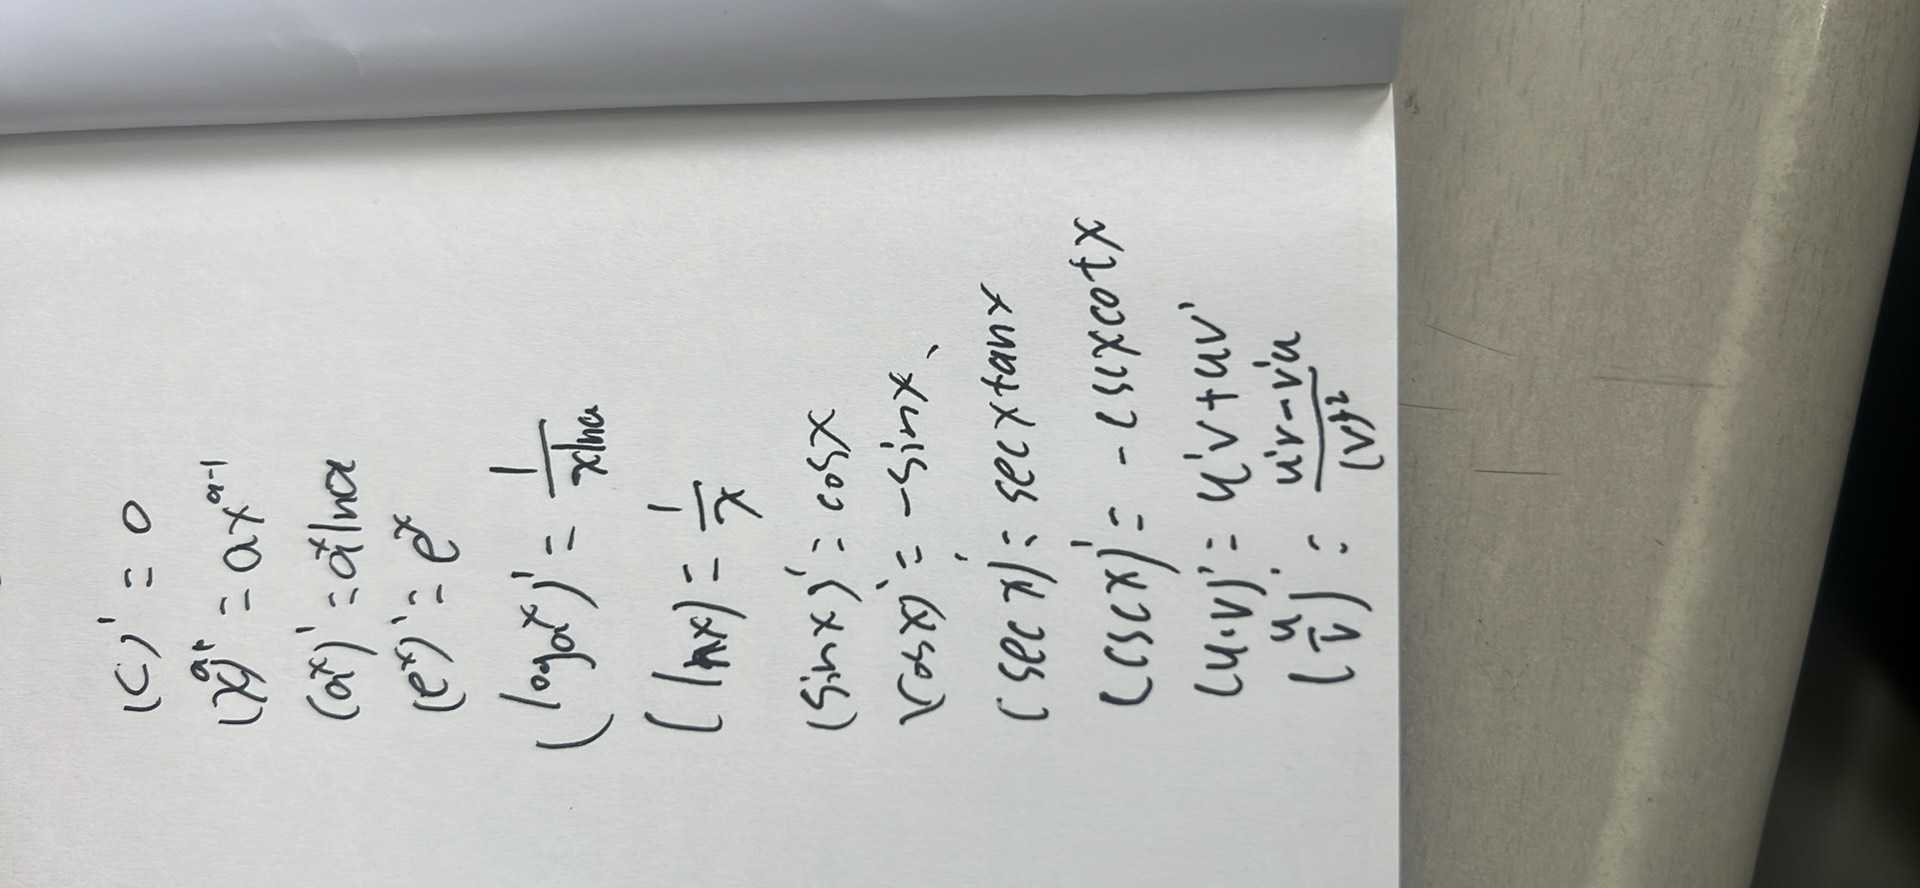 (C)' = 0
(x^a)' = ax^(a-1)
(a^x)' = a^x lna
(e^x)' = e^x
(log_a x)' = 1/(xlna)
(lnx)' = 1/x
(sinx)' = cosx
(cosx)' = -sinx
(secx)' = secxtanx
(cscx)' = -cscxcotx
(u·v)' = u'v+uv'
(u/v)' = (u'v-v'u)/(v)^2